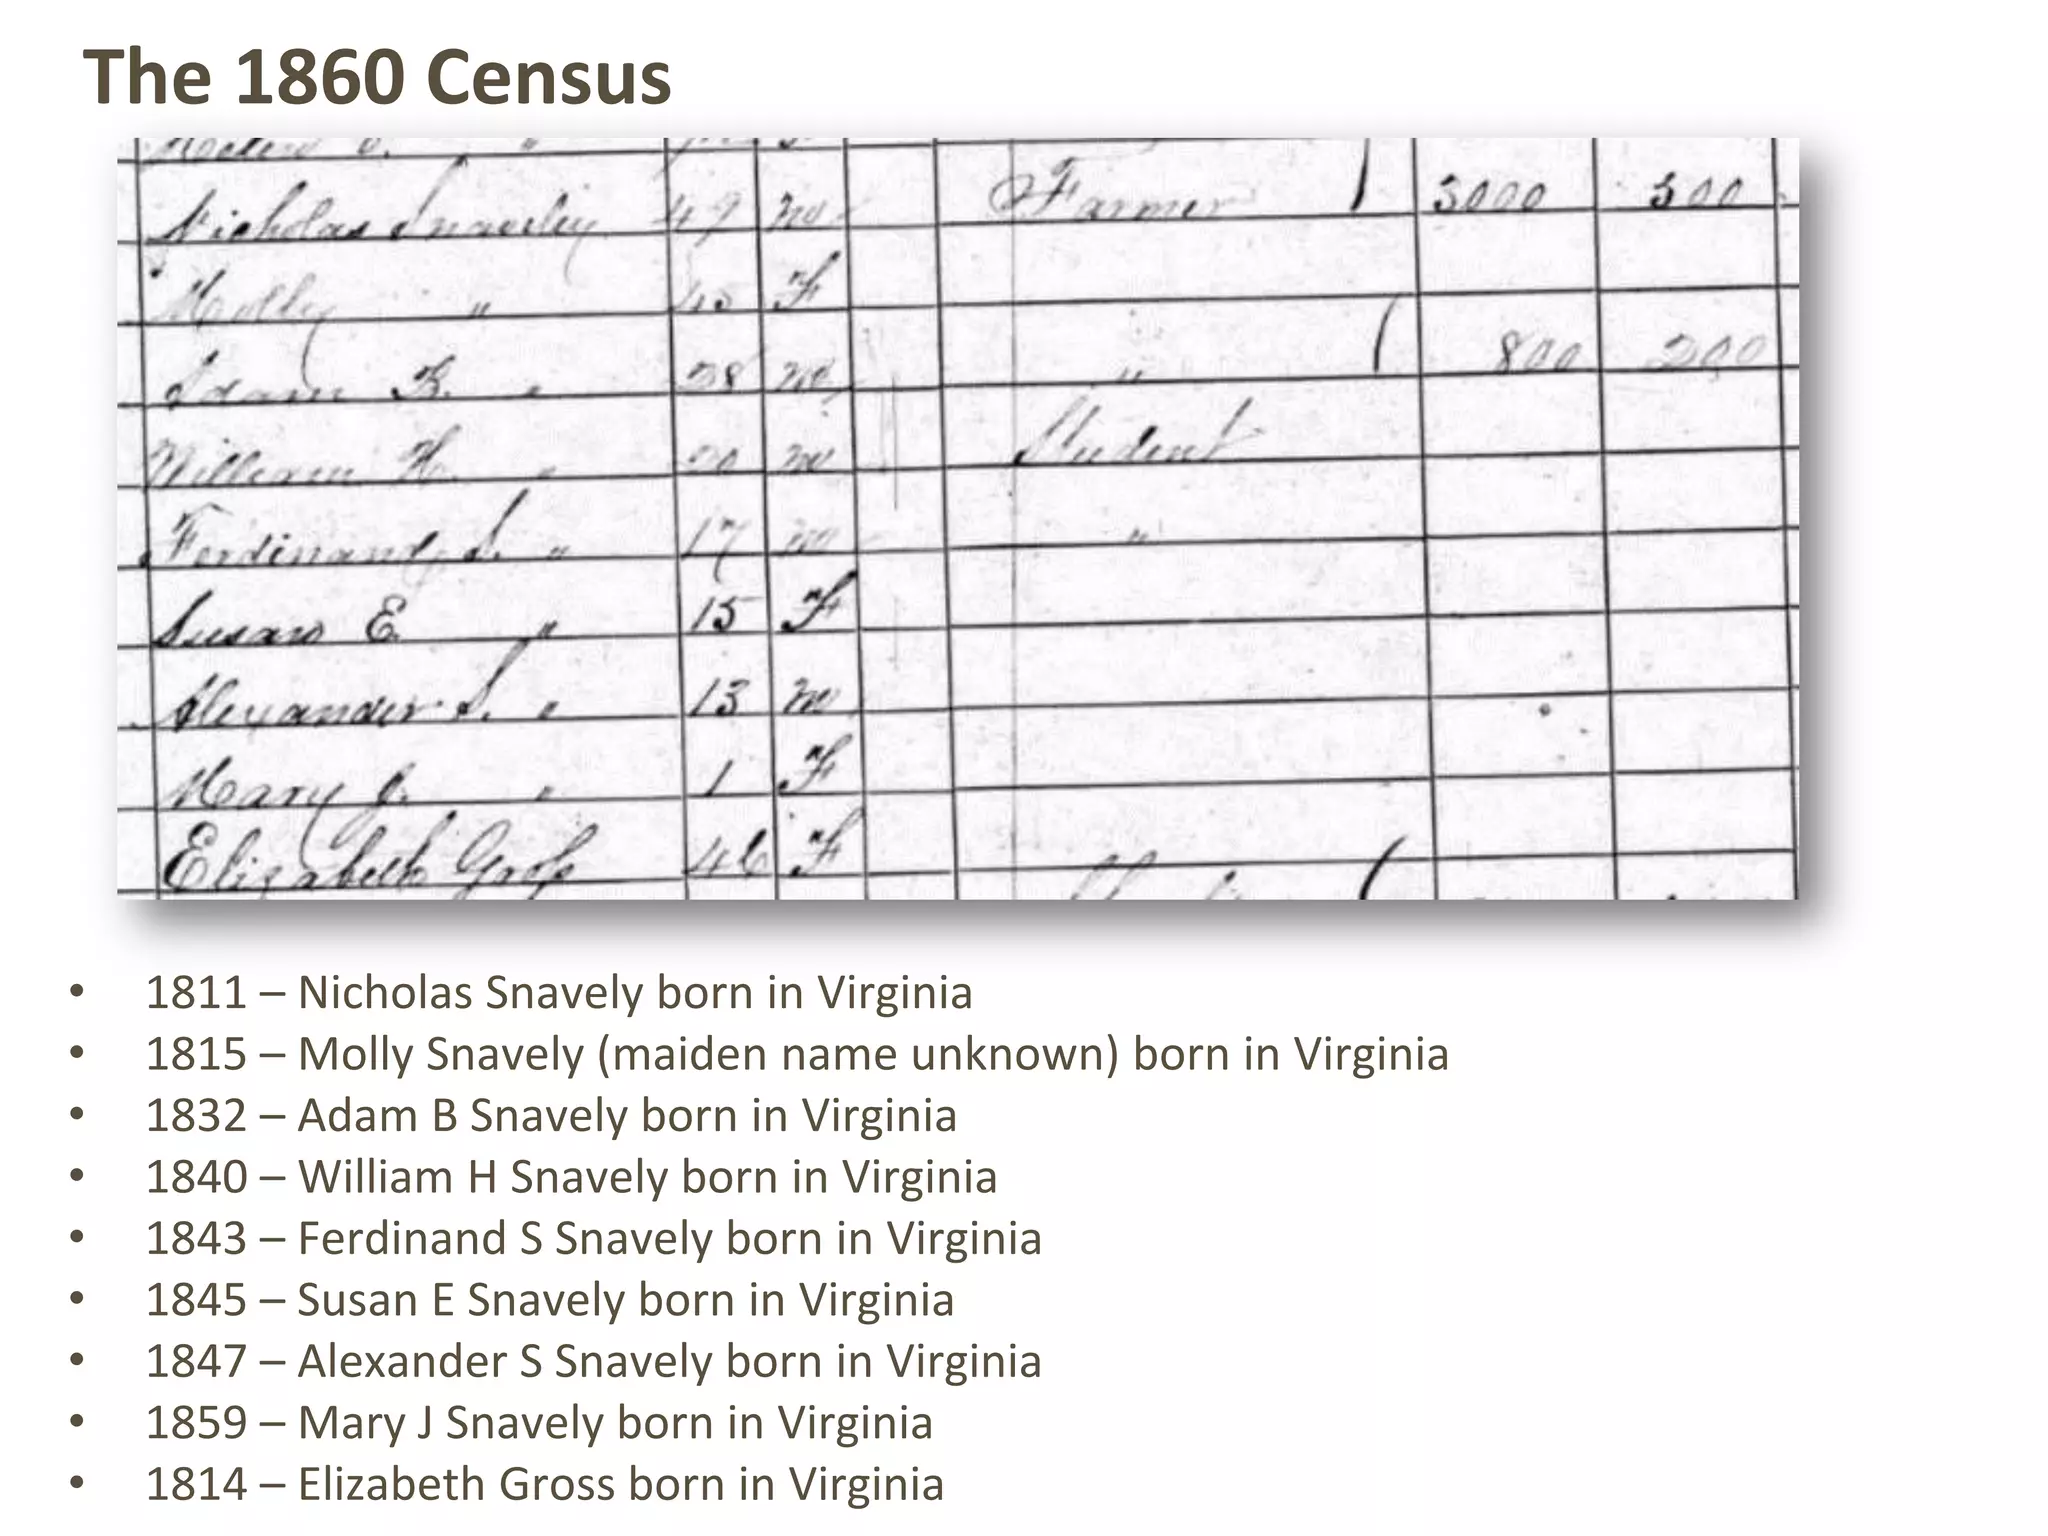 The 1860 Census
Nicholas Snavely 49 m Farmer 3000 500
Molly " 45 F
Adam B. " 28 m " 800 200
William H. " 20 m Student
Ferdinand S. " 17 m "
Susan E. " 15 F
Alexander S. " 13 m
Mary J. " 1 F
Elizabeth Gross 46 F
• 1811 – Nicholas Snavely born in Virginia
• 1815 – Molly Snavely (maiden name unknown) born in Virginia
• 1832 – Adam B Snavely born in Virginia
• 1840 – William H Snavely born in Virginia
• 1843 – Ferdinand S Snavely born in Virginia
• 1845 – Susan E Snavely born in Virginia
• 1847 – Alexander S Snavely born in Virginia
• 1859 – Mary J Snavely born in Virginia
• 1814 – Elizabeth Gross born in Virginia